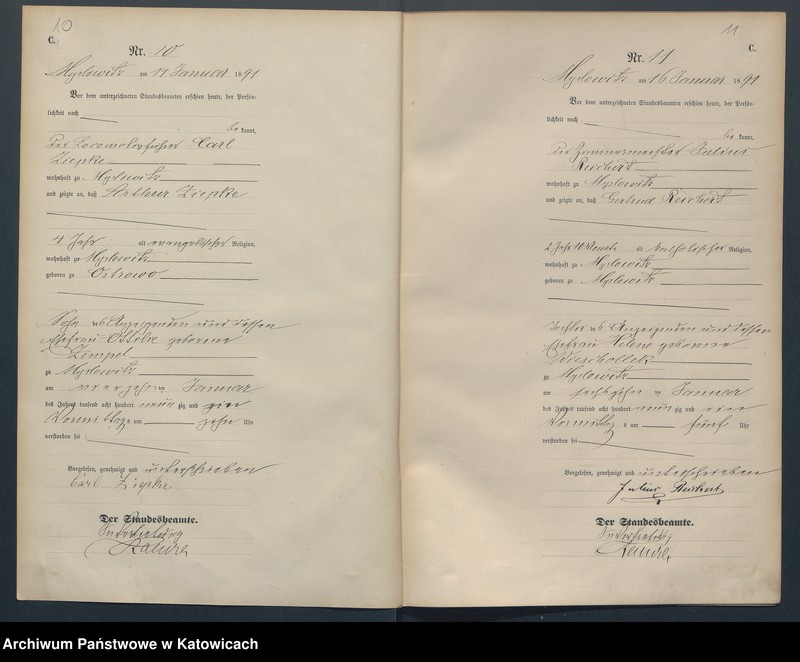 10
C.
Nr. 10
Myslowitz am 14 Januar 1891
Vor dem unterzeichneten Standesbeamten erschien heute, der Persön-
lichkeit nach
be kannt,
der Locomotivführer Carl
Ziepke
wohnhaft zu Myslowitz
und zeigte an, daß Arthur Ziepke
4 Jahr alt evangelischer Religion,
wohnhaft zu Myslowitz
geboren zu Ostrowo
Sohn des Anzeigenden und dessen
Ehefrau Ottilie geborene
Zimpel
zu Myslowitz
am vierzehn ten Januar
des Jahres tausend acht hundert neun zig und ein
Vormittags um zehn Uhr
verstorben sei
Vorgelesen, genehmigt und unterschrieben
Carl Ziepke
Der Standesbeamte.
In Vertretung
11
C.
Nr. 11
Myslowitz am 16 Januar 1891
Vor dem unterzeichneten Standesbeamten erschien heute, der Persön-
lichkeit nach
be kannt,
der Zimmermeister Julius
Reichert
wohnhaft zu Myslowitz
und zeigte an, daß Gertrud Reichert
2 Jahr 10 Monat alt katholischer Religion,
wohnhaft zu Myslowitz
geboren zu Myslowitz
Tochter des Anzeigenden und dessen
Ehefrau Helene geborene
zu Myslowitz
am sechszehn ten Januar
des Jahres tausend acht hundert neun zig und ein
Vormittags um fünf Uhr
verstorben sei
Vorgelesen, genehmigt und unterschrieben
Julius Reichert
Der Standesbeamte.
In Vertretung
Archiwum Państwowe w Katowicach